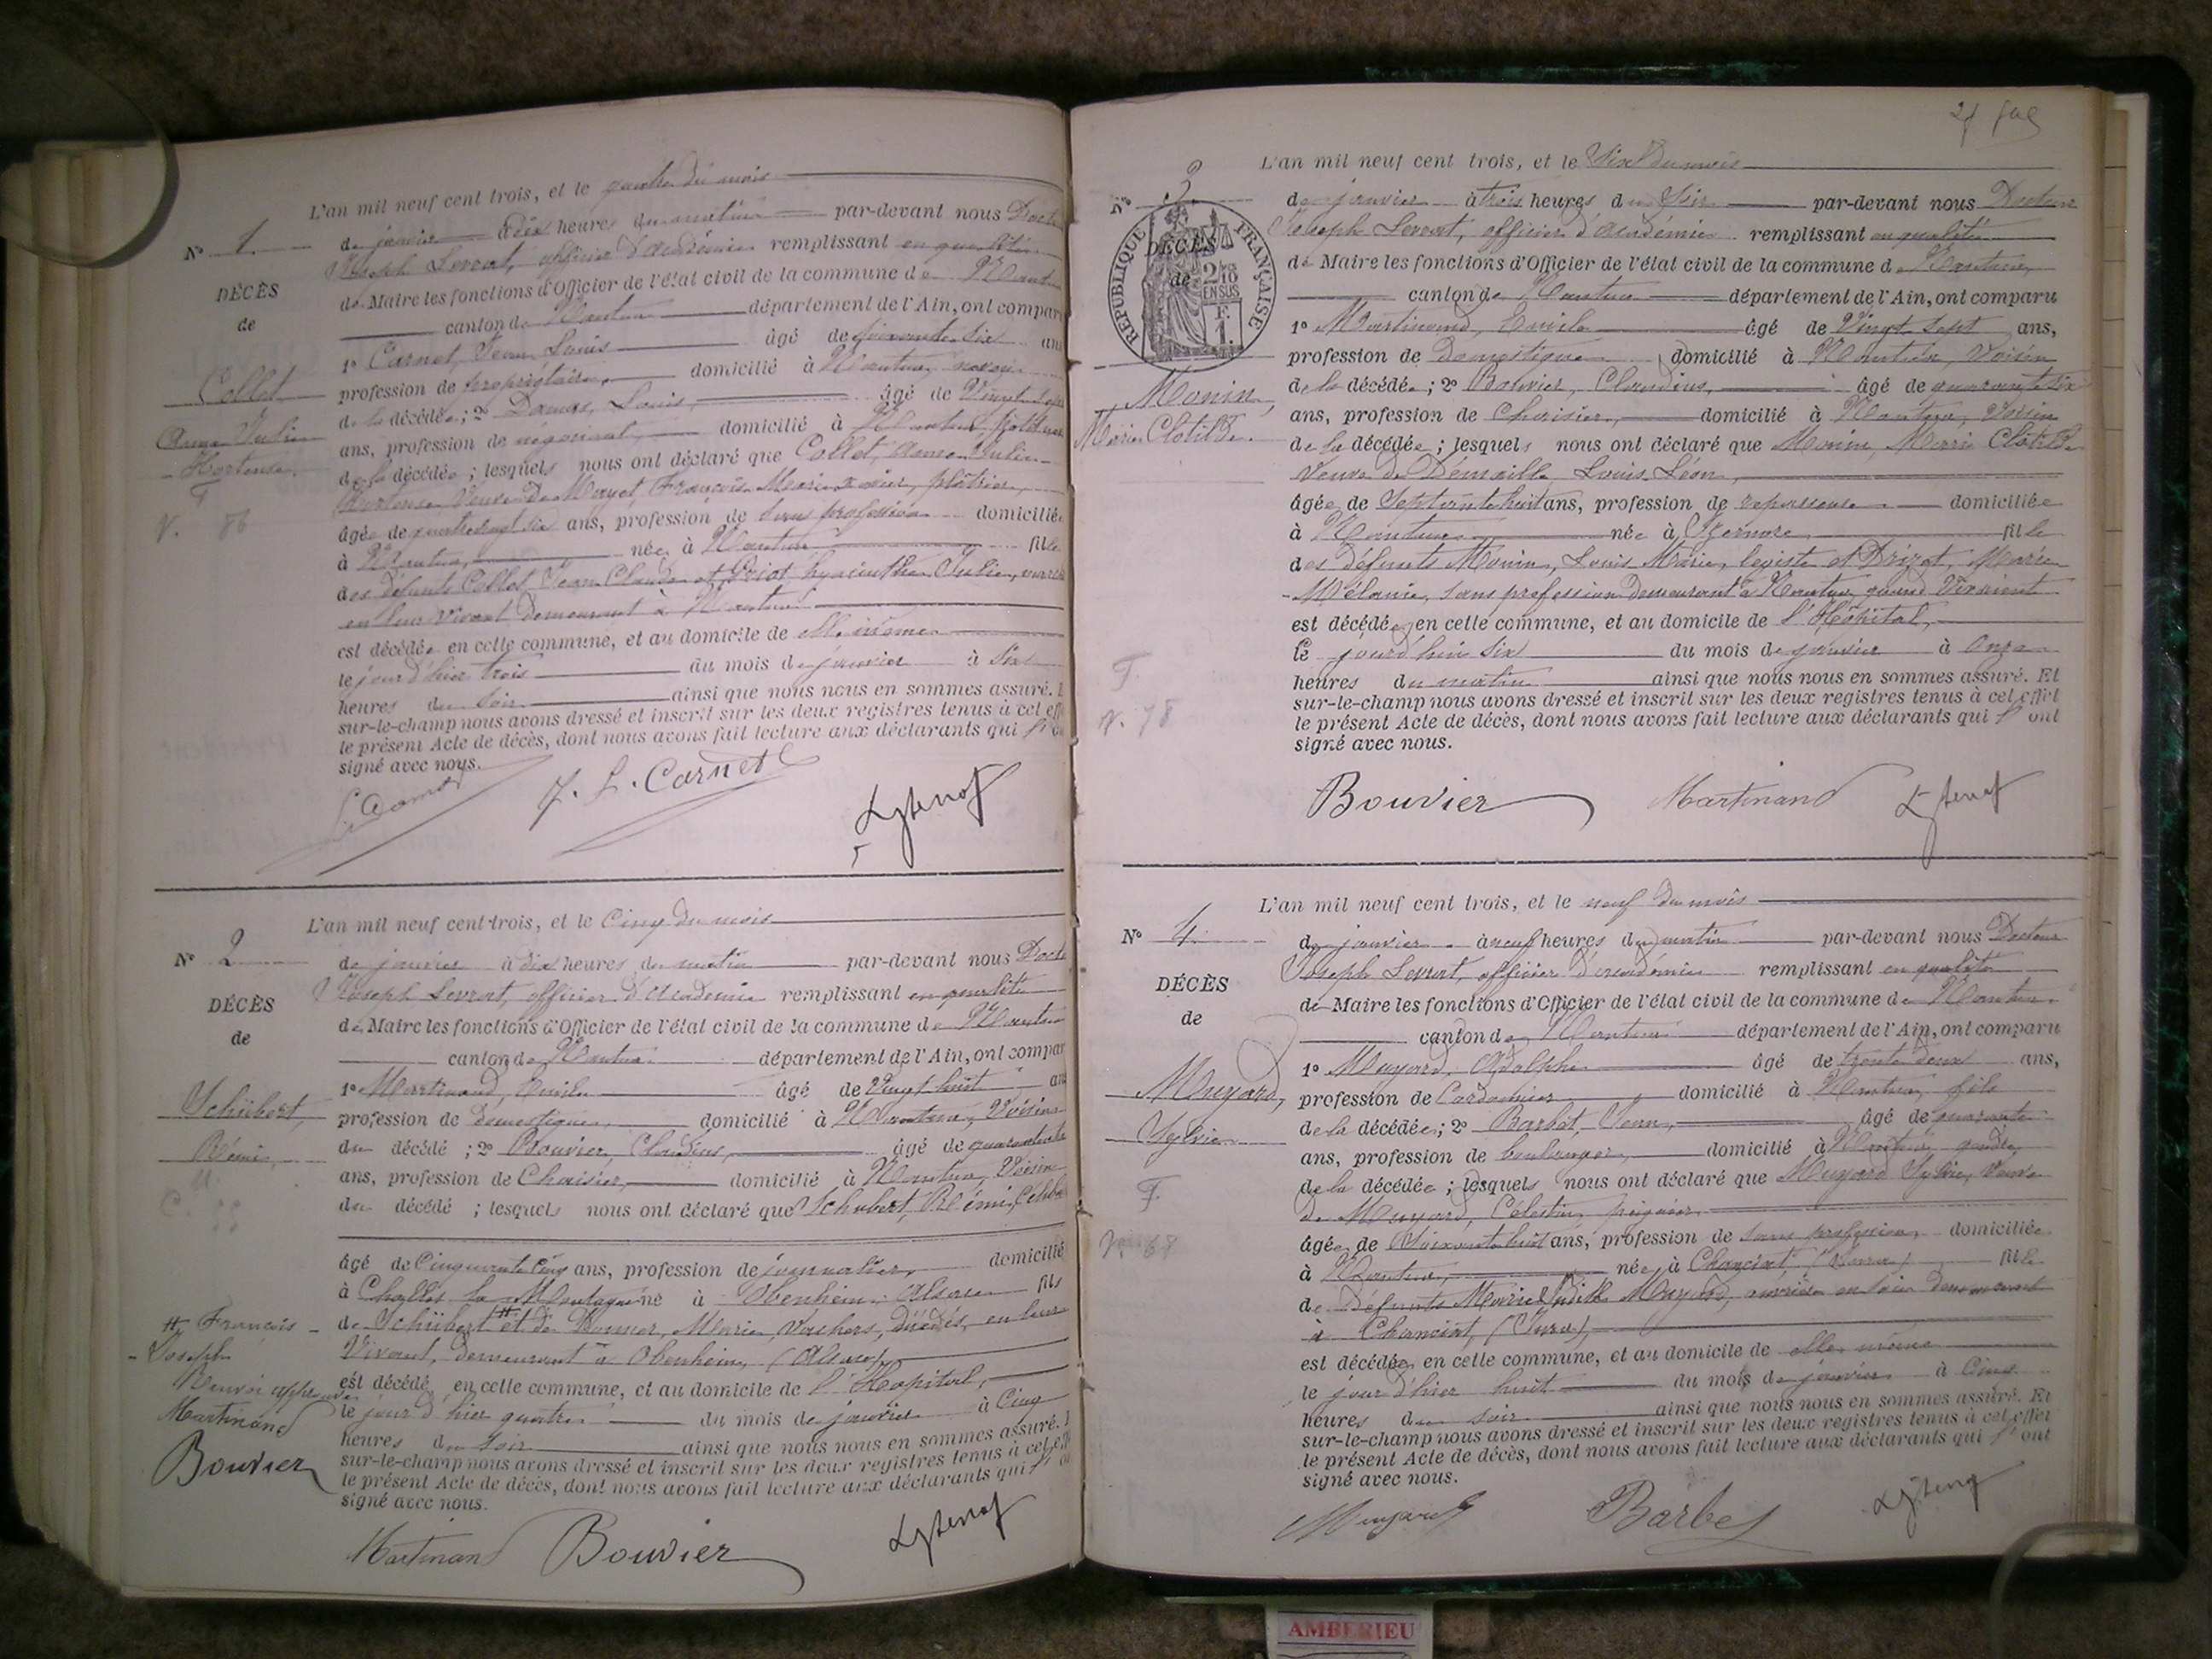 L'an mil neuf cent trois, et le quatre du mois
N° 1.
de janvier à dix heures du matin par-devant nous
Joseph Levrat, officier d'académie remplissant en qualité
DÉCÈS
de Maire les fonctions d'Officier de l'état civil de la commune de Nantua
de
canton de Nantua département de l'Ain, ont compar
1° Carnet, Jean Louis âgé de soixante six ans
Collet
profession de propriétaire, domicilié à Nantua
de la décédée; 2° Damas, Louis, âgé de Vingt sept
Hortense.
ans, profession de négociant, domicilié à Nantua
de la décédée; lesquels nous ont déclaré que Collet,
F
Hortense Veuve de Mayet, François Marie plâtrier,
V. 86
âgée de quatrevingt six ans, profession de sans profession domiciliée
à Nantua, née à Nantua fille
des défunts Collet Jean Claude et hyacinthe Julie,
en leur vivant demeurant à Nantua
est décédée en cette commune, et au domicile de elle même
le jour d'hier trois du mois de janvier à six
heures du soir ainsi que nous nous en sommes assuré. E
sur-le-champ nous avons dressé et inscrit sur les deux registres tenus à cet eff
le présent Acte de décès, dont nous avons fait lecture aux déclarants qui l'on
signé avec nous.
L. Damas J. L. Carnet
L'an mil neuf cent trois, et le Cinq du mois
N° 2
de janvier à dix heures du matin par-devant nous Docte
Joseph Levrat, officier d'académie remplissant en qualité
DÉCÈS
de Maire les fonctions d'Officier de l'état civil de la commune de Nantua
de
canton de Nantua département de l'Ain, ont compar
1° Martinand, Emile âgé de Vingt huit an
Schubert,
profession de domestique, domicilié à Nantua, Voisin
Rémi,
du décédé; 2° Bouvier, Claudius, âgé de
M
ans, profession de Chaisier, domicilié à Nantua, Voisin
du décédé; lesquels nous ont déclaré que Schubert, Rémi,
C. 55
âgé de Cinquante cinq ans, profession de journalier, domicilié
à Challes la Montagne né à Obenheim Alsace fils
# François
de Schübert # et de Marie, décédés, en leur
Joseph
Vivant, demeurant à Obenheim, (Alsace)
Renvoi approuvé
est décédé en cette commune, et au domicile de l'Hôpital,
Martinand
le jour d'hier quatre du mois de janvier à Cinq
Bouvier
heures du soir ainsi que nous nous en sommes assuré. E
sur-le-champ nous avons dressé et inscrit sur les deux registres tenus à cet eff
le présent Acte de décès, dont nous avons fait lecture aux déclarants qui l'on
signé avec nous.
Martinand Bouvier
L'an mil neuf cent trois, et le Six du mois
N° 3
de janvier à trois heures du Soir par-devant nous Docteur
Joseph Levrat, officier d'académie remplissant en qualité
RÉPUBLIQUE FRANÇAISE
DÉCÈS
2/10 EN SUS
de
F. 1.
de Maire les fonctions d'Officier de l'état civil de la commune de Nantua,
canton de Nantua département de l'Ain, ont comparu
1° Martinand, Emile âgé de Vingt sept ans,
profession de domestique, domicilié à Nantua, Voisin
Monin,
de la décédée; 2° Bouvier, Claudius, âgé de quarante six
Marie Clotilde.
ans, profession de Chaisier, domicilié à Nantua, Voisin
de la décédée; lesquels nous ont déclaré que Monin, Marie Clotilde
Veuve de Louis Léon,
âgée de Septante huit ans, profession de repasseuse domiciliée
à Nantua née à fille
des défunts Monin, Louis Marie, et Marie
Mélanie, sans profession demeurant à Nantua, quand Vivaient
est décédée, en cette commune, et au domicile de l'Hôpital,
le jourd'hui six du mois de janvier à onze
F.
heures du matin ainsi que nous nous en sommes assuré. Et
sur-le-champ nous avons dressé et inscrit sur les deux registres tenus à cet effet
V. 78
le présent Acte de décès, dont nous avons fait lecture aux déclarants qui l'ont
signé avec nous.
Bouvier Martinand
L'an mil neuf cent trois, et le neuf du mois
N° 4.
de janvier à neuf heures du matin par-devant nous Docteur
Joseph Levrat, officier d'académie remplissant en qualité
DÉCÈS
de Maire les fonctions d'Officier de l'état civil de la commune de Nantua
de
canton de Nantua département de l'Ain, ont comparu
1° Muyard, Adolphe âgé de trente deux ans,
Muyard,
profession de Cordonnier, domicilié à Nantua, fils
Sylvie
de la décédée; 2° Barbet, Jean, âgé de quarante
ans, profession de boulanger, domicilié à Nantua, gendre
de la décédée; lesquels nous ont déclaré que Muyard Sylvie, Veuve
F.
de Muyard, Célestin,
V. 68
âgée de Soixante huit ans, profession de sans profession domiciliée
à Nantua, née à Chancia (Jura) fille
de défunts Marie Muyard, demeurant
à Chancia, (Jura),
est décédée, en cette commune, et au domicile de elle même
le jour d'hier huit du mois de janvier à Cinq
heures du soir ainsi que nous nous en sommes assuré. Et
sur-le-champ nous avons dressé et inscrit sur les deux registres tenus à cet effet
le présent Acte de décès, dont nous avons fait lecture aux déclarants qui l'ont
signé avec nous.
Muyard Barbet
AMBERIEU